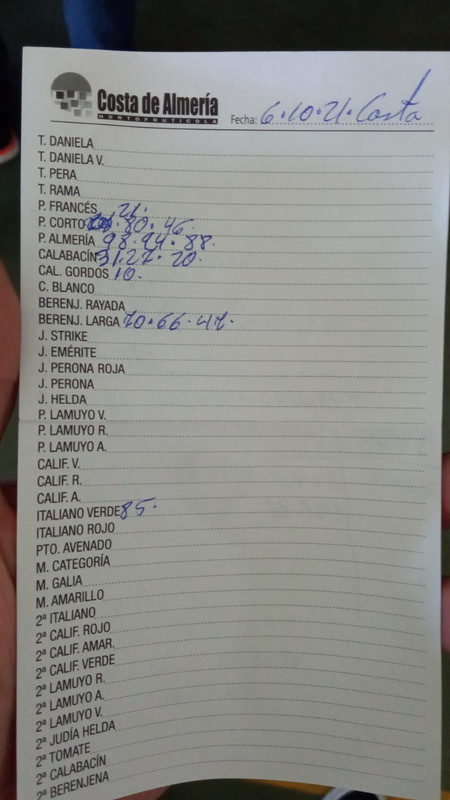 Costa de Almería
HORTOFRUTICOLA
Fecha: 6.10.21. Costa
T. DANIELA
T. DANIELA V.
T. PERA
T. RAMA
P. FRANCÉS 21.
P. CORTO 80.46.
P. ALMERÍA 98.94.88.
CALABACÍN 31.27.20.
CAL. GORDOS 10.
C. BLANCO
BERENJ. RAYADA
BERENJ. LARGA 70.66.47.
J. STRIKE
J. EMÉRITE
J. PERONA ROJA
J. PERONA
J. HELDA
P. LAMUYO V.
P. LAMUYO R.
P. LAMUYO A.
CALIF. V.
CALIF. R.
CALIF. A.
ITALIANO VERDE 85.
ITALIANO ROJO
PTO. AVENADO
M. CATEGORÍA
M. GALIA
M. AMARILLO
2ª ITALIANO
2ª CALIF. ROJO
2ª CALIF. AMAR.
2ª CALIF. VERDE
2ª LAMUYO R.
2ª LAMUYO A.
2ª LAMUYO V.
2ª JUDÍA HELDA
2ª TOMATE
2ª CALABACÍN
2ª BERENJENA